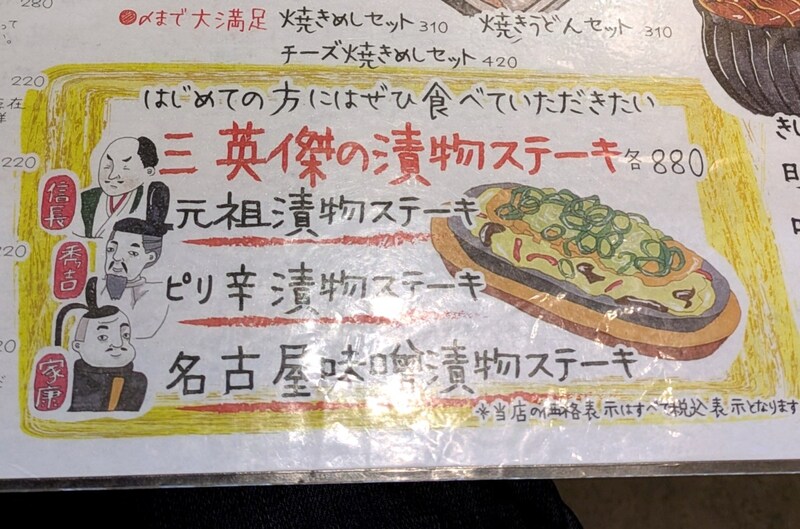 280
●〆まで大満足 焼きめしセット310 焼きうどんセット310
チーズ焼きめしセット420
220
はじめての方にはぜひ食べていただきたい
三英傑の漬物ステーキ各880
220
信長
元祖漬物ステーキ
220
秀吉
ピリ辛漬物ステーキ
家康
名古屋味噌漬物ステーキ
※当店の価格表示はすべて税込表示となります